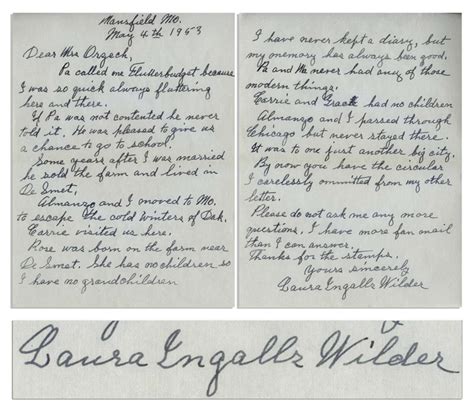 Mansfield Mo.
May 4th 1953
Dear Mrs Orzech,
Pa called me Flutterbudget because
I was so quick always fluttering
here and there.
If Pa was not contented he never
told it. He was pleased to give us
a chance to go to school.
Some years after I was married
he sold the farm and lived in
De Smet.
Almanzo and I moved to Mo.
to escape the cold winters of Dak.
Carrie visited us here.
Rose was born on the farm near
De Smet. She has no children so
I have no grandchildren
I have never kept a diary, but
my memory has always been good.
Pa and Ma never had any of those
modern things.
Carrie and Grace had no children
Almanzo and I passed through
Chicago but never stayed there.
It was to one just another big city.
By now you have the circular
I carelessly ommitted from my other
letter.
Please do not ask me any more
questions. I have more fan mail
than I can answer.
Thanks for the stamps.
Yours sincerely
Laura Ingalls Wilder
Laura Ingalls Wilder